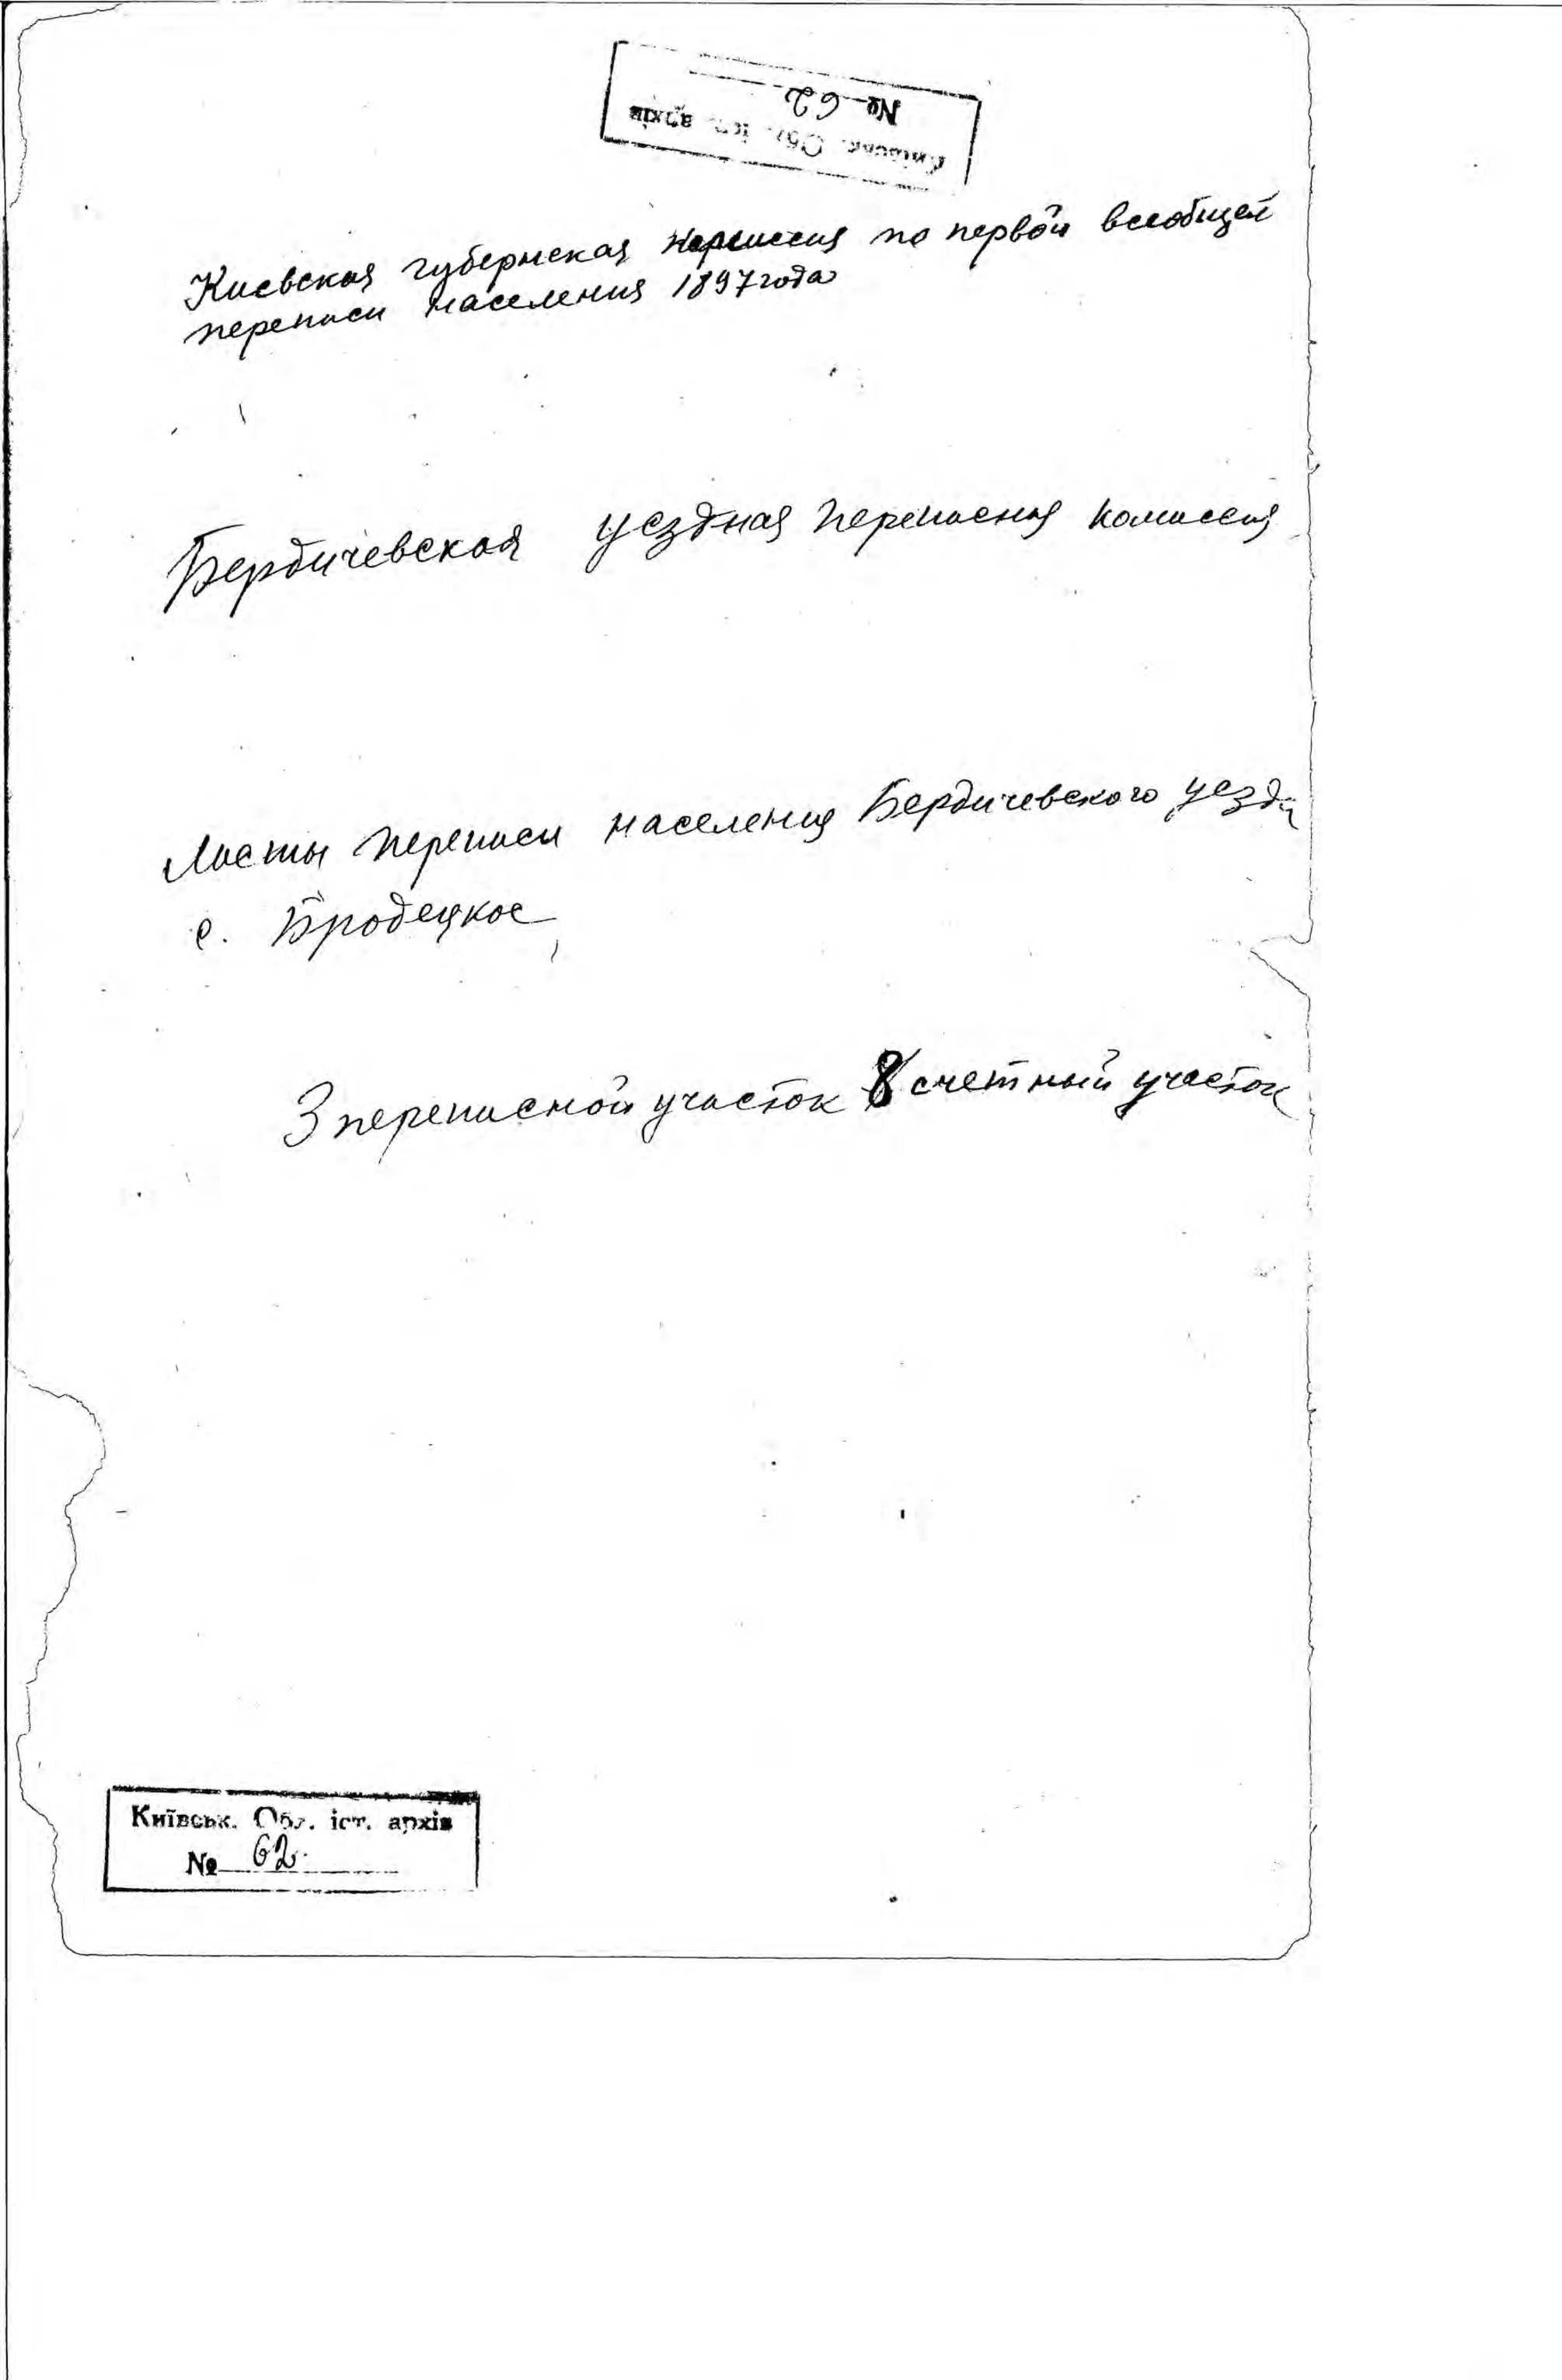 Київськ. Обл. іст. архів
№ 62
Киевская губернская комиссия по первой всеобщей
переписи населения 1897 года
Бердичевская уездная переписная комиссия
Листы переписи населения Бердичевского уезда
с. Бродецкое
3 переписной участок 8 счетный участок
Київськ. Обл. іст. архів
№ 62